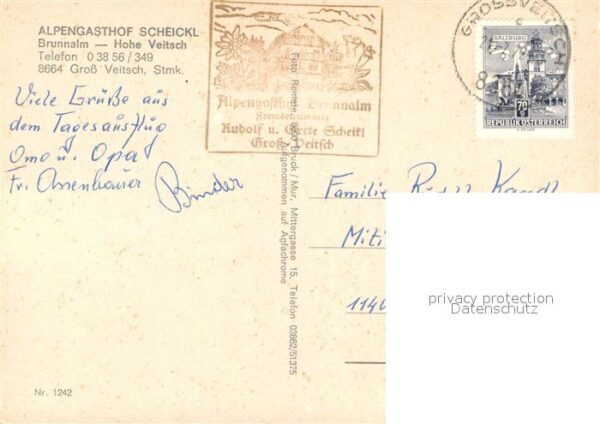 ALPENGASTHOF SCHEICKL
Brunnalm — Hohe Veitsch
Telefon 0 38 56 / 349
8664 Groß Veitsch, Stmk.
Viele Grüße aus
dem Tagesausflug
Oma u. Opa
Fr.
Binder
Nr. 1242
Alpengasthof Brunnalm
Fremdenzimmer
Rudolf u. Grete Scheikl
Groß-Veitsch
Foto: 8600 Bruck / Mur, Mittergasse 15, Telefon 03862/51375
Aufgenommen auf Agfachrome
GROSSVEITSCH
SALZBURG
70
REPUBLIK ÖSTERREICH
Familie
1140
privacy protection
Datenschutz